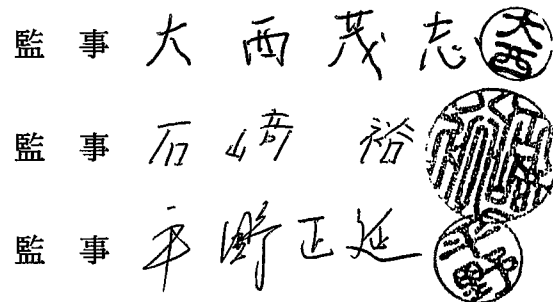 監事 大西茂志 大西
監事 石﨑裕
監事 平野正延 平野